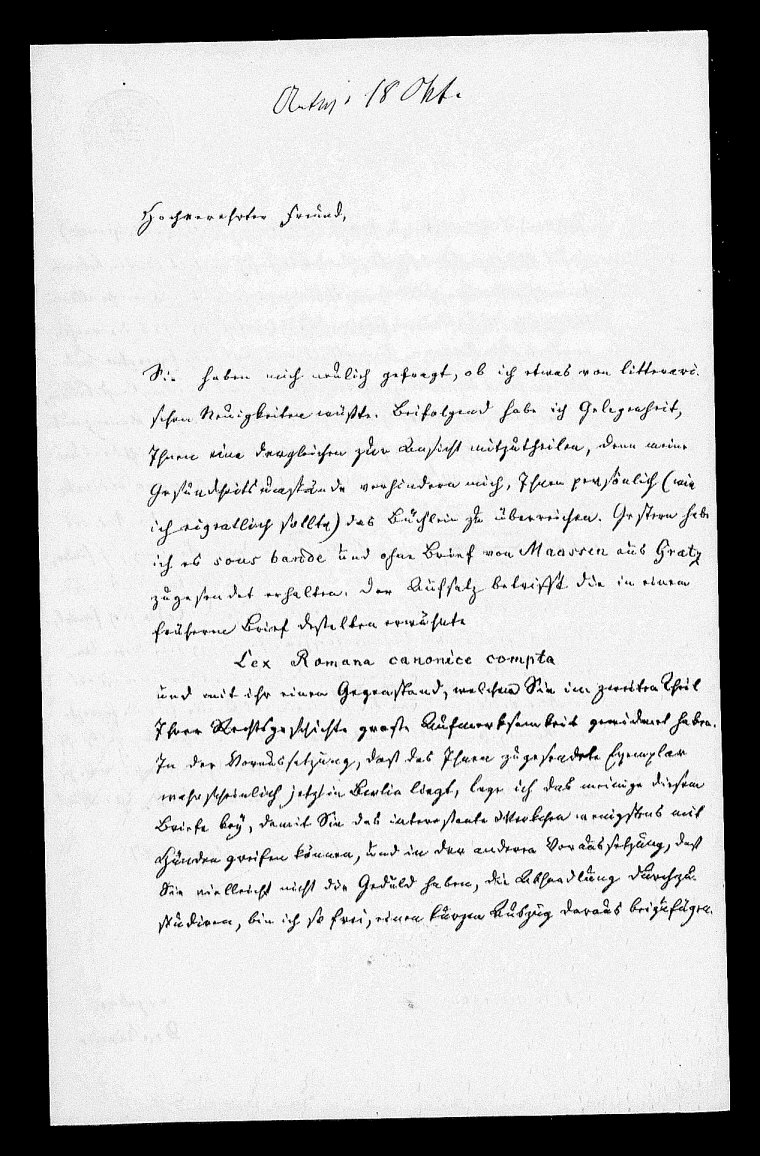 18 Okt.
Hochverehrter Freund,
Sie haben mich neulich gefragt, ob ich etwas von litterari-
schen Neuigkeiten wüßte. Beifolgend habe ich Gelegenheit,
Ihnen eine dergleichen zur Ansicht mitzutheilen, denn meine
Gesundheitsumstände verhindern mich, Ihnen persönlich (wie
ich eigentlich sollte) das Büchlein zu überreichen. Gestern habe
ich es sous bande und ohne Brief von Maassen aus Gratz
zugesendet erhalten. Der Aufsatz betrifft die in einem
früheren Brief desselben erwähnte
Lex Romana canonice compta
und mit ihr einen Gegenstand, welchem Sie im zweiten Theil
Ihrer Rechtsgeschichte große Aufmerksamkeit gewidmet haben.
In der Voraussetzung, daß das Ihnen zugesendete Exemplar
wahrscheinlich jetzt in Berlin liegt, lege ich das meinige diesem
Briefe bey, damit Sie das interessante Werkchen wenigstens mit
Händen greifen können, und in der anderen Voraussetzung, daß
Sie vielleicht nicht die Geduld haben, die Abhandlung durchzu-
studiren, bin ich so frei, einen kurzen Auszug daraus beizufügen.